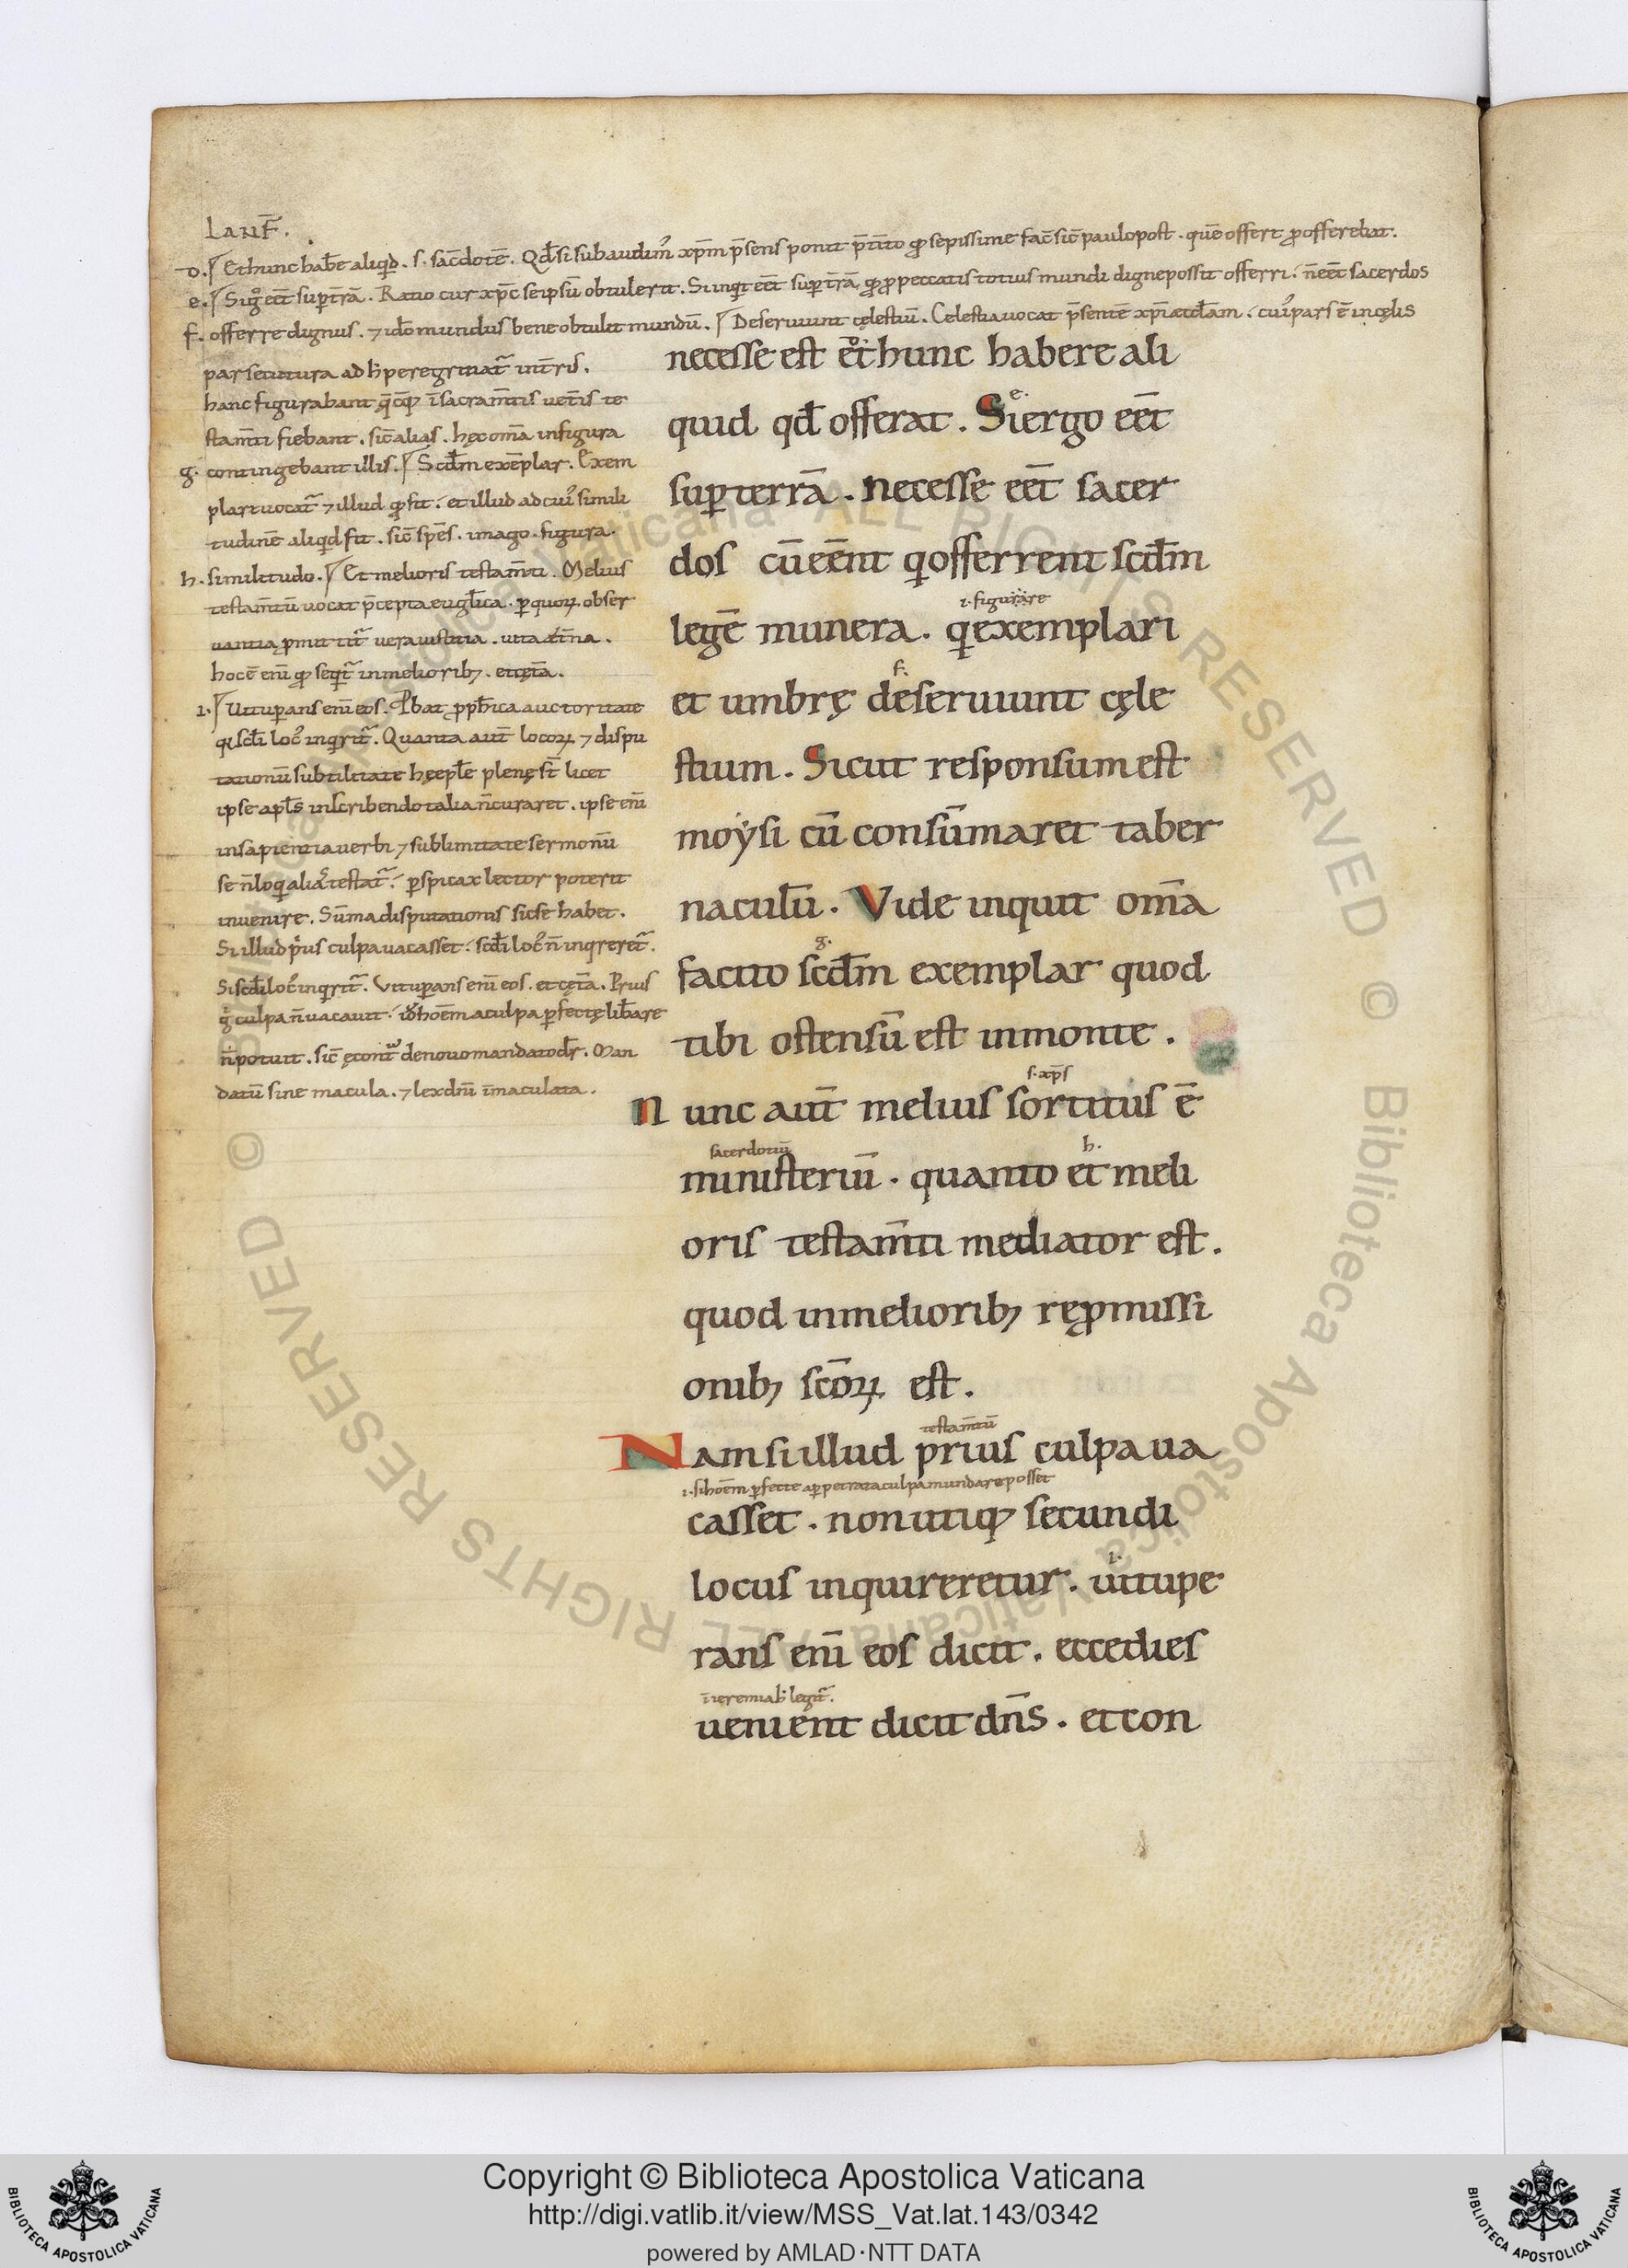 Lanf̄.
d. Et hunc hab̄e aliqid. s. sac̄dotē. Qd̄ si subaudim᷒ xp̄m p̄sens ponit p̄t̄ito qđ sepissime fac̄ sic̄ paulo post. quē offert p offerebat.
e. Si g̊ eēt sup t̄rā. Ratio cur xp̄c seipsū obtulerit. Si inqit eēt sup t̄rā, qđ p peccatis totius mundi digne possit offerri. n̄ eēt sacerdos
f. offerre dignus. ⁊ id̄o mundus bene obtulit mundū. Deseruiunt cęlestiū. Celestia uocat p̄sentē xp̄i ęccl̄am. cui᷒ pars ē in cęlis
pars ut̄ura ad h̄ peregrinat᷑ in t̄ris.
hanc figurabant q̄cq; ī sacram̄tis uet̄is te
stam̄ti fiebant. sic̄ alias. hęc om̄a in figura
g. contingebant illis. Scd̄m exēplar. Exem
plar uocat᷑ ⁊ illud qđ fit. et illud ad cui᷒ simili
tudinē aliqid fit. sic̄ sp̄es. imago. figura.
h. similitudo. Et melioris testam̄ti. Melius
testam̄tū uocat p̄cepta euglīca. p quoꝝ obser
uantia pmittit᷑ uera iustitia. uita et̄na.
hoc ē eni̅ qđ seqit᷑ in meliorib;. et cęt̄a.
i. Uituperans eni̅ eos. Pbat pph̄ica auctoritate
q scd̄i loc᷒ inqirit᷑. Quanta aut̄ locoꝝ ⁊ dispu
tationū subtilitate hęc epl̄e plenę st̄ licet
ipse apl̄s in scribendo talia n̄ curaret. ipse eni̅
in sapientia uerbi ⁊ sublimitate sermonū
se n̄ loqi alias testat᷑. pspicax lector poterit
inuenire. Sūma disputationis sic se habet.
Si illud pius culpa uacasset. scd̄i loc᷒ n̄ inqreret᷑.
Si scd̄i loc᷒ inqirit᷑. Uituperans eni̅ eos. et cęt̄a. Prius
g̊ culpa n̄ uacauit. id̄o hoēm a culpa pfecte lib̄are
n̄ potuit. sic̄ ęcont̄ de nouo mandato dr̄. Man
datū sine macula. ⁊ lex dn̄i īmaculata.
necesse est et hunc habere ali
quid qd̄ offerat. Si ergo eēt
e.
sup terrā. necesse eēt sacer
dos cū eēnt q offerrent scd̄m
i. figurare
legē munera. q exemplari
f.
et umbrę deseruiunt cęle
stium. Sicut responsum est
moysi cū consūmaret taber
naculū. Vide inquit om̄a
g.
facito scd̄m exemplar quod
tibi ostensū est in monte.
s. xp̄s
Nunc aut̄ melius sortitus ē
sacerdotiū h.
ministeriū. quanto et meli
oris testam̄ti mediator est.
quod in meliorib; repmissi
onib; scōꝝ est.
testam̄tū
Nam si illud prius culpa ua
i. si hoēm pfecte a ppetrata culpa mundare posset
casset. non utiq; secundi
i.
locus inquireretur. uitupe
rans eni̅ eos dicit. ecce dies
ī ieremia h̄ legit᷑.
uenient dicit dn̄s. et con
© Biblioteca Apostolica Vaticana ALL RIGHTS RESERVED © Biblioteca Apostolica Vaticana ALL RIGHTS RESERVED
Copyright © Biblioteca Apostolica Vaticana
http://digi.vatlib.it/view/MSS_Vat.lat.143/0342
powered by AMLAD·NTT DATA
BIBLIOTECA APOSTOLICA VATICANA
BIBLIOTECA APOSTOLICA VATICANA